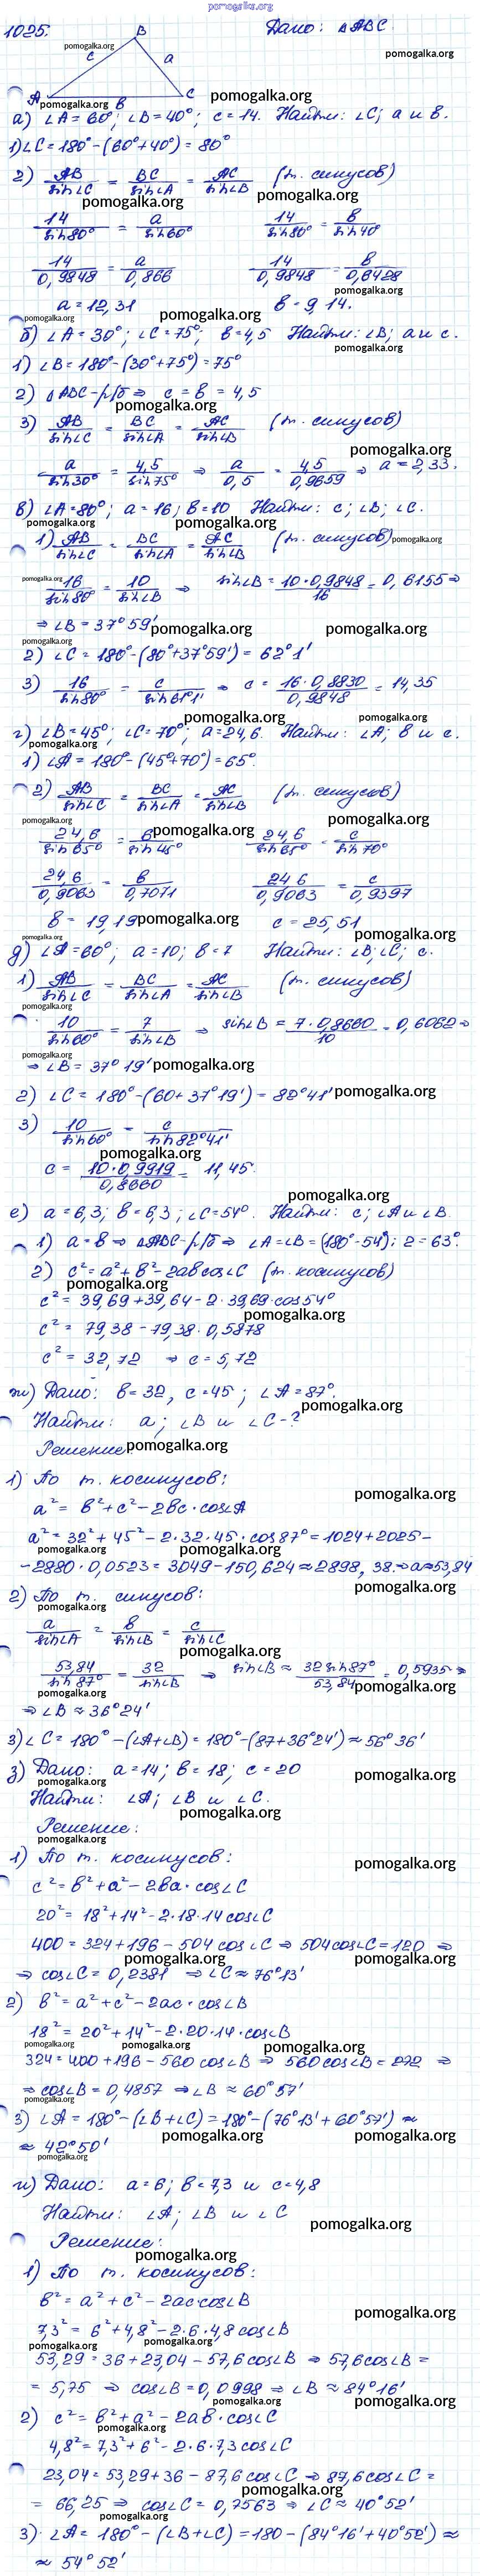 pomogalka.org
1025.
Дано: △ABC.
pomogalka.org
B
c a
A C
b
pomogalka.org pomogalka.org
а) ∠A = 60°; ∠B = 40°; c = 14. Найти: ∠C; a и b.
1) ∠C = 180° - (60° + 40°) = 80°
2) AB/sin∠C = BC/sin∠A = AC/sin∠B (т. синусов)
pomogalka.org pomogalka.org
14/sin80° = a/sin60° 14/sin80° = b/sin40°
pomogalka.org
14/0,9848 = a/0,866 14/0,9848 = b/0,6428
pomogalka.org
a = 12,31 b = 9,14.
pomogalka.org pomogalka.org
б) ∠A = 30°; ∠C = 75°; b = 4,5 Найти: ∠B; a и c.
pomogalka.org
1) ∠B = 180° - (30° + 75°) = 75°
2) △ABC - р/б ⇒ c = b = 4,5
pomogalka.org
3) AB/sin∠C = BC/sin∠A = AC/sin∠B (т. синусов)
pomogalka.org
a/sin30° = 4,5/sin75° ⇒ a/0,5 = 4,5/0,9659 ⇒ a = 2,33.
в) ∠A = 80°; a = 16; b = 10 Найти: c; ∠B; ∠C.
pomogalka.org pomogalka.org
1) AB/sin∠C = BC/sin∠A = AC/sin∠B (т. синусов) pomogalka.org
pomogalka.org
16/sin80° = 10/sin∠B ⇒ sin∠B = 10·0,9848/16 = 0,6155 ⇒
⇒ ∠B = 37°59' pomogalka.org pomogalka.org
pomogalka.org
2) ∠C = 180° - (80° + 37°59') = 62°1'
3) 16/sin80° = c/sin61°1' ⇒ c = 16·0,8830/0,9848 = 14,35
pomogalka.org pomogalka.org
г) ∠B = 45°; ∠C = 70°; a = 24,6. Найти: ∠A; b и c.
pomogalka.org
1) ∠A = 180° - (45° + 70°) = 65°.
2) AB/sin∠C = BC/sin∠A = AC/sin∠B (т. синусов)
pomogalka.org pomogalka.org
24,6/sin65° = b/sin45° pomogalka.org 24,6/sin65° = c/sin70°
24,6/0,9063 = b/0,7071 24,6/0,9063 = c/0,9397
b = 19,19 pomogalka.org c = 25,51
pomogalka.org pomogalka.org
д) ∠A = 60°; a = 10; b = 7 Найти: ∠B; ∠C; c.
1) AB/sin∠C = BC/sin∠A = AC/sin∠B (т. синусов)
pomogalka.org
10/sin60° = 7/sin∠B ⇒ sin∠B = 7·0,8660/10 = 0,6062 ⇒
pomogalka.org
⇒ ∠B = 37°19' pomogalka.org
2) ∠C = 180° - (60 + 37°19') = 82°41' pomogalka.org
3) 10/sin60° = c/sin82°41'
pomogalka.org
c = 10·0,9919/0,8660 = 11,45.
pomogalka.org
е) a = 6,3; b = 6,3; ∠C = 54°. Найти: c; ∠A и ∠B.
1) a = b ⇒ △ABC - р/б ⇒ ∠A = ∠B = (180° - 54°) : 2 = 63°.
2) c² = a² + b² - 2ab cos∠C (т. косинусов)
pomogalka.org
c² = 39,69 + 39,64 - 2·39,69·cos54°
pomogalka.org
c² = 79,38 - 79,38·0,5878
c² = 32,72 ⇒ c = 5,72
ж) Дано: b = 32, c = 45; ∠A = 87°.
pomogalka.org
Найти: a; ∠B и ∠C - ?
Решение pomogalka.org
1) По т. косинусов:
pomogalka.org
a² = b² + c² - 2bc·cos∠A
a² = 32² + 45² - 2·32·45·cos87° = 1024 + 2025 -
pomogalka.org pomogalka.org
- 2880·0,0523 = 3049 - 150,624 ≈ 2898,38. ⇒ a ≈ 53,84
pomogalka.org
2) По т. синусов:
pomogalka.org
a/sin∠A = b/sin∠B = c/sin∠C
pomogalka.org
53,84/sin87° = 32/sin∠B ⇒ sin∠B ≈ 32 sin87°/53,84 = 0,5935 ⇒
pomogalka.org pomogalka.org
⇒ ∠B ≈ 36°24'
3) ∠C = 180° - (∠A + ∠B) = 180° - (87 + 36°24') ≈ 56°36'
з) Дано: a = 14; b = 18; c = 20
pomogalka.org pomogalka.org
Найти: ∠A; ∠B и ∠C.
pomogalka.org
Решение:
pomogalka.org
1) По т. косинусов:
pomogalka.org
c² = b² + a² - 2ba·cos∠C
20² = 18² + 14² - 2·18·14 cos∠C
400 = 324 + 196 - 504 cos∠C ⇒ 504 cos∠C = 120 ⇒
pomogalka.org pomogalka.org
⇒ cos∠C = 0,2381 ⇒ ∠C ≈ 76°13'
2) b² = a² + c² - 2ac·cos∠B
18² = 20² + 14² - 2·20·14·cos∠B
pomogalka.org pomogalka.org pomogalka.org
324 = 400 + 196 - 560 cos∠B ⇒ 560 cos∠B = 272 ⇒
⇒ cos∠B = 0,4857 ⇒ ∠B ≈ 60°57'
pomogalka.org
3) ∠A = 180° - (∠B + ∠C) = 180° - (76°13' + 60°57') ≈
pomogalka.org pomogalka.org
≈ 42°50'
pomogalka.org
и) Дано: a = 6; b = 7,3 и c = 4,8
Найти: ∠A; ∠B и ∠C
pomogalka.org
Решение:
pomogalka.org
1) По т. косинусов:
b² = a² + c² - 2ac·cos∠B
pomogalka.org
7,3² = 6² + 4,8² - 2·6·4,8 cos∠B
pomogalka.org pomogalka.org
53,29 = 36 + 23,04 - 57,6 cos∠B ⇒ 57,6 cos∠B =
= 5,75 ⇒ cos∠B = 0,0998 ⇒ ∠B ≈ 84°16'
pomogalka.org pomogalka.org
2) c² = b² + a² - 2ab·cos∠C
pomogalka.org
4,8² = 7,3² + 6² - 2·6·7,3 cos∠C
23,04 = 53,29 + 36 - 87,6 cos∠C ⇒ 87,6 cos∠C =
pomogalka.org
= 66,25 ⇒ cos∠C = 0,7563 ⇒ ∠C ≈ 40°52'
pomogalka.org pomogalka.org
3) ∠A = 180° - (∠B + ∠C) = 180 - (84°16' + 40°52') ≈
≈ 54°52'